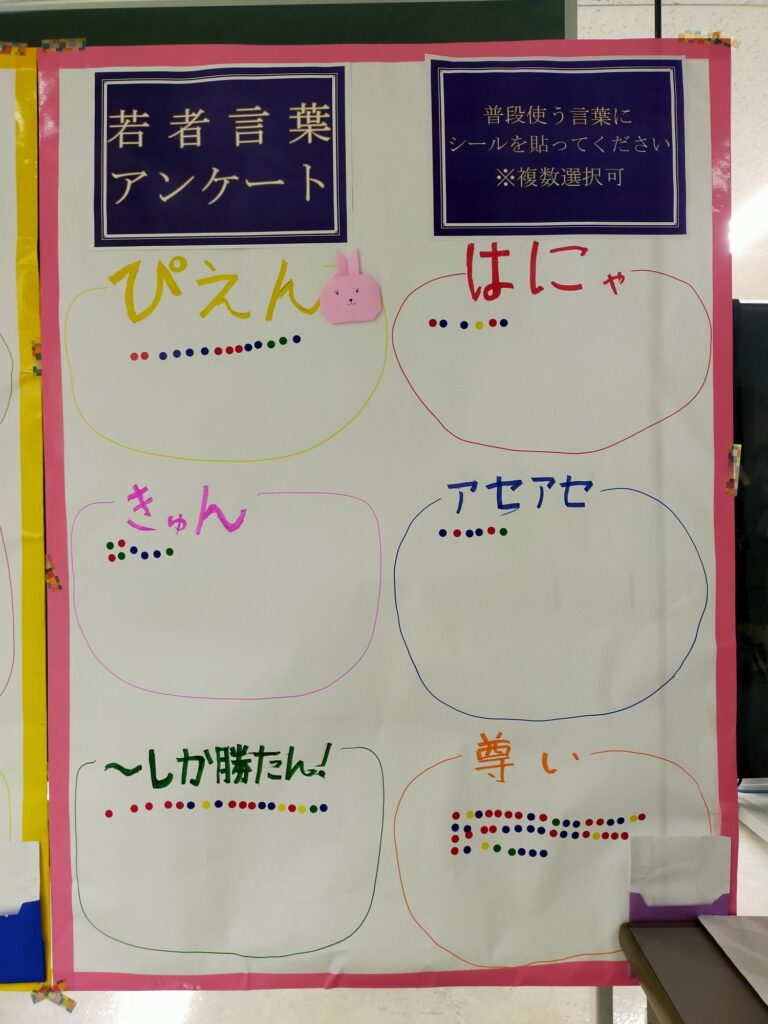 若者言葉
アンケート
普段使う言葉に
シールを貼ってください
※複数選択可
ぴえん
はにゃ
きゅん
アセアセ
～しか勝たん!
尊い